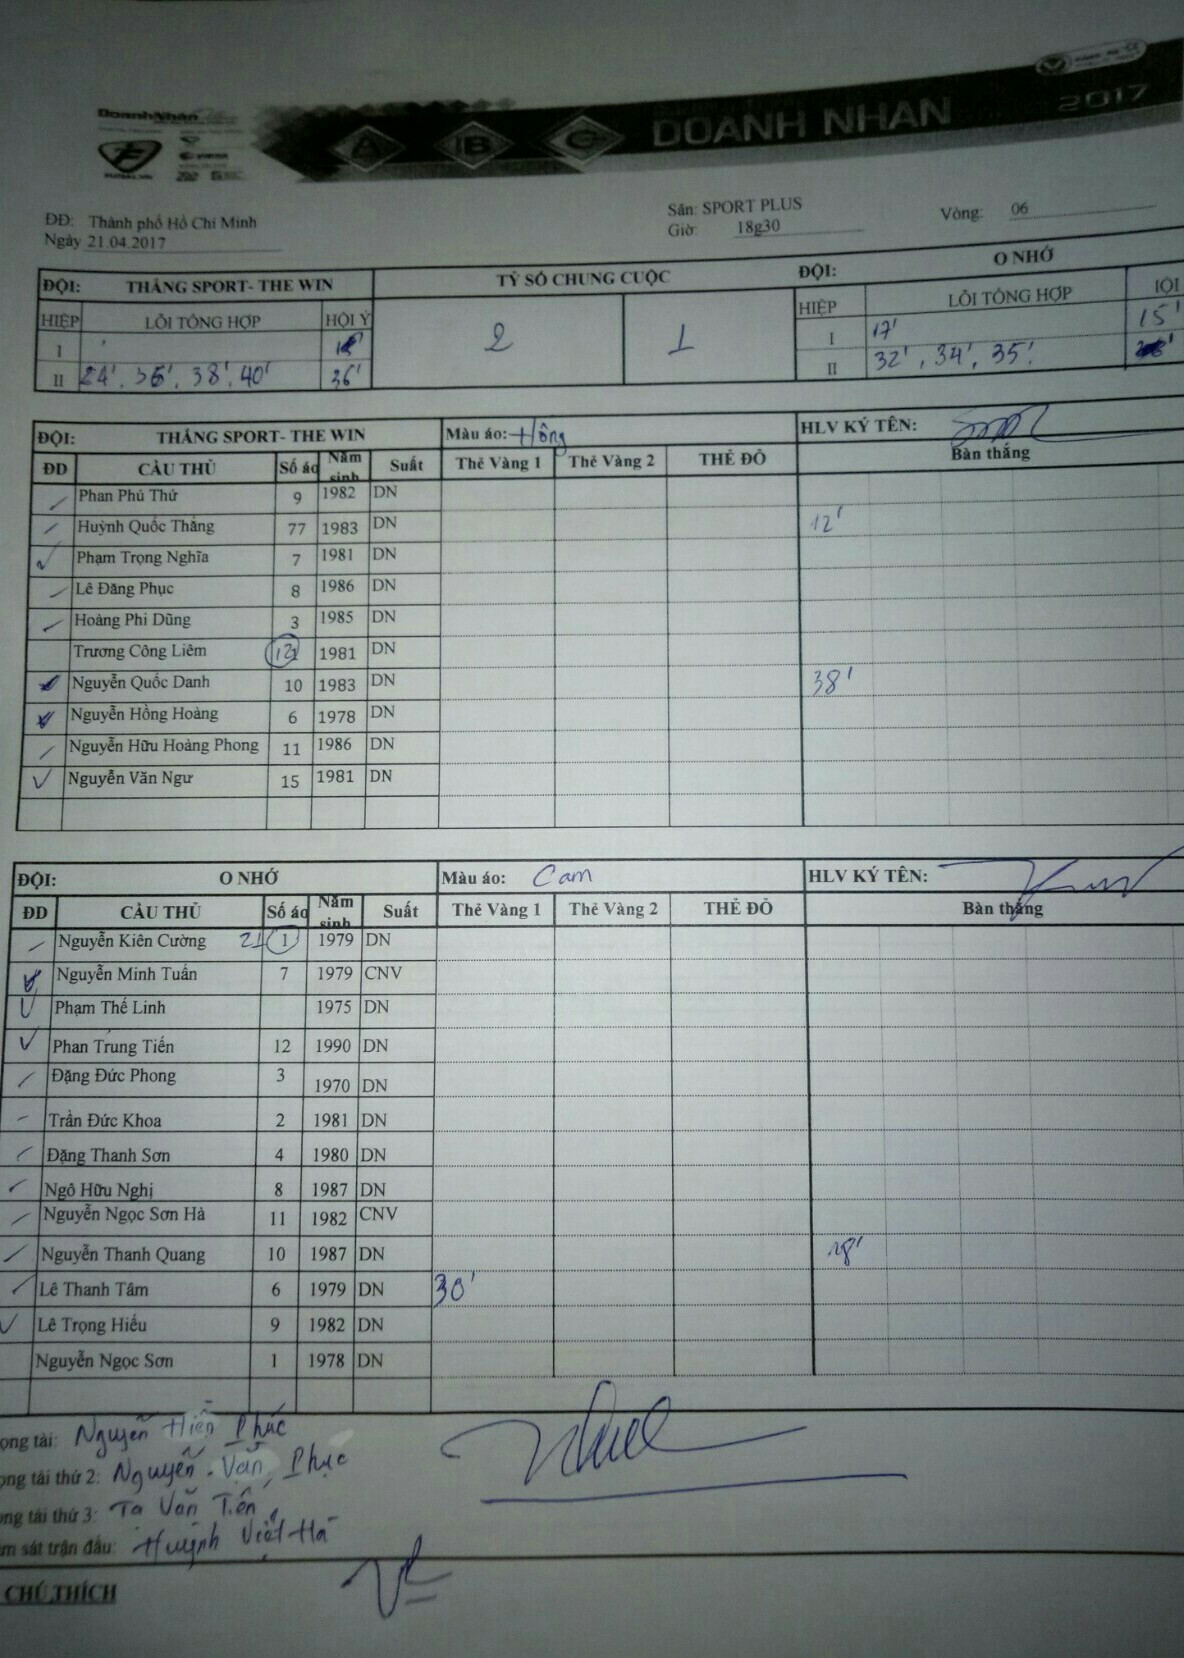 DoanhNhân
DOANH NHAN 2017
A B C
ĐĐ: Thành phố Hồ Chí Minh
Ngày 21.04.2017
Sân: SPORT PLUS
Giờ: 18g30
Vòng: 06
ĐỘI: THẮNG SPORT- THE WIN TỶ SỐ CHUNG CUỘC ĐỘI: O NHỚ
HIỆP LỖI TỔNG HỢP HỘI Ý 2 1 HIỆP LỖI TỔNG HỢP IỘI
I I 17' 15'
II 24', 36', 38', 40' 36' II 32', 34', 35'
ĐỘI: THẮNG SPORT- THE WIN Màu áo: Hồng HLV KÝ TÊN:
ĐD CẦU THỦ Số áo Năm sinh Suất Thẻ Vàng 1 Thẻ Vàng 2 THẺ ĐỎ Bàn thắng
Phan Phú Thứ 9 1982 DN
Huỳnh Quốc Thắng 77 1983 DN 12'
Phạm Trọng Nghĩa 7 1981 DN
Lê Đăng Phục 8 1986 DN
Hoàng Phi Dũng 3 1985 DN
Trương Công Liêm 1981 DN
Nguyễn Quốc Danh 10 1983 DN 38'
Nguyễn Hồng Hoàng 6 1978 DN
Nguyễn Hữu Hoàng Phong 11 1986 DN
Nguyễn Văn Ngư 15 1981 DN
ĐỘI: O NHỚ Màu áo: Cam HLV KÝ TÊN:
ĐD CẦU THỦ Số áo Năm sinh Suất Thẻ Vàng 1 Thẻ Vàng 2 THẺ ĐỎ Bàn thắng
Nguyễn Kiên Cường 21 1 1979 DN
Nguyễn Minh Tuấn 7 1979 CNV
Phạm Thế Linh 1975 DN
Phan Trung Tiến 12 1990 DN
Đặng Đức Phong 3 1970 DN
Trần Đức Khoa 2 1981 DN
Đặng Thanh Sơn 4 1980 DN
Ngô Hữu Nghị 8 1987 DN
Nguyễn Ngọc Sơn Hà 11 1982 CNV
Nguyễn Thanh Quang 10 1987 DN
Lê Thanh Tâm 6 1979 DN 30'
Lê Trọng Hiếu 9 1982 DN
Nguyễn Ngọc Sơn 1 1978 DN
ọng tài: Nguyễn Hiền Phúc
ọng tài thứ 2: Nguyễn Văn Phục
ọng tài thứ 3: Tạ Văn Tiến
m sát trận đấu: Huỳnh Việt Hà
CHÚ THÍCH